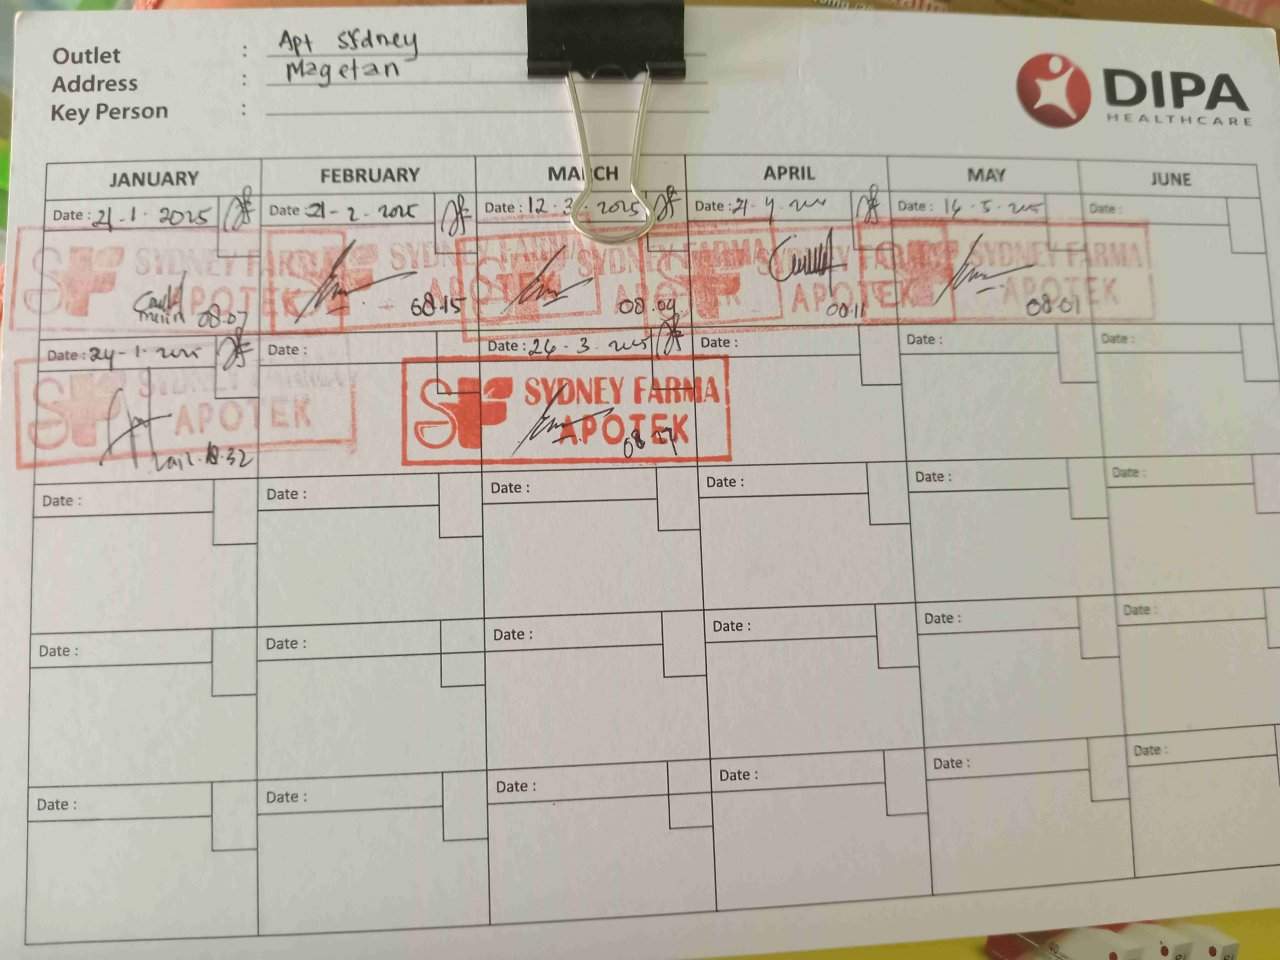 Outlet : Apt Sydney
Address : Magetan
Key Person :
DIPA
HEALTHCARE
JANUARY FEBRUARY MARCH APRIL MAY JUNE
Date : 21-1-2025 Date : 21-2-2025 Date : 12-3-2025 Date : 21-4- Date : 14-5-2025 Date :
SYDNEY FARMA SYDNEY FARMA SYDNEY FARMA SYDNEY FARMA
APOTEK APOTEK APOTEK APOTEK APOTEK
08.07 08.15 08.09 08.11 08.01
Date : 24-1-2025 Date : Date : 24-3-2025 Date : Date : Date :
SF SYDNEY FARMA
APOTEK SF SYDNEY FARMA
APOTEK
Date : Date : Date : Date : Date : Date :
Date : Date : Date : Date : Date : Date :
Date : Date : Date : Date : Date : Date :